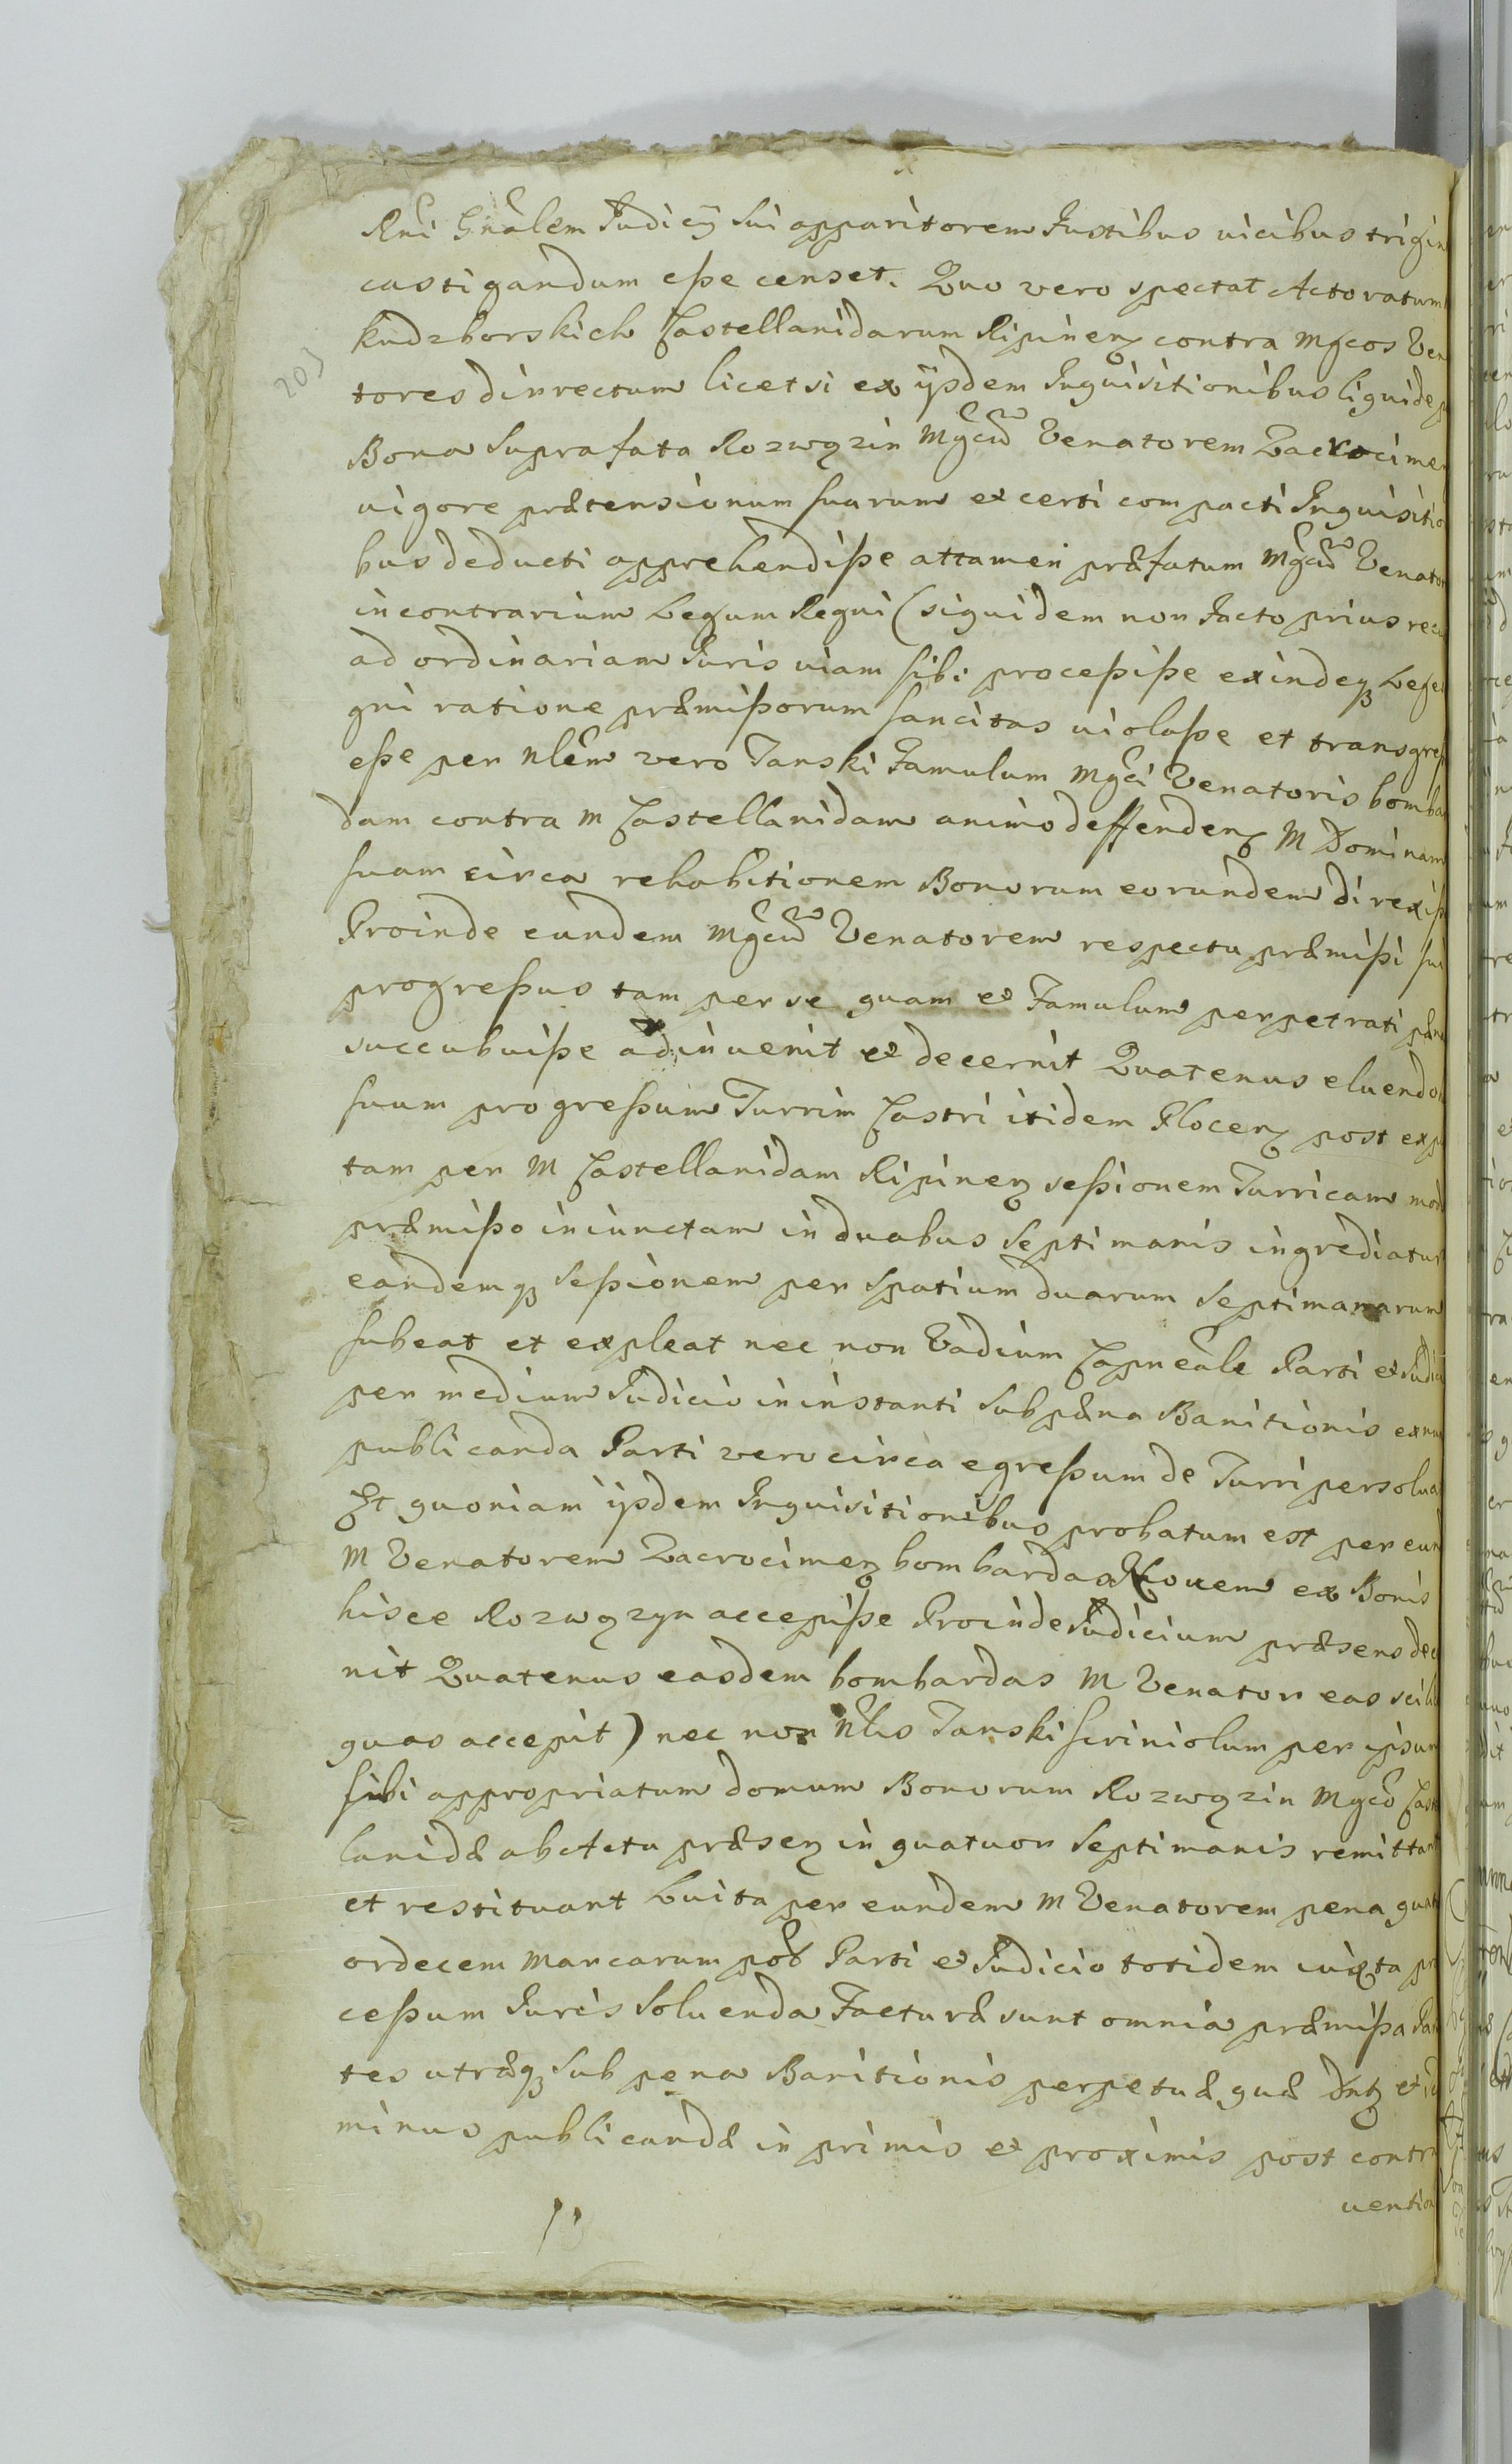 Rni Gnalem Judicij sui apparitorem fustibus vicibus trigin
castigandum esse censet. Quo vero spectat Actoratum
Kudzborskich Castellanidarum Ripinen contra Mgcos Ven
tores dirrectum licet si ex ijsdem Inquisitionibus liquide
Bona suprafata Rozwozin Mgcum Venatorem Zacrocimen
vigore prætensionum suarum ex certi compacti Inquisitio
bus deducti apprehendisse attamen præfatum Mgcum Venator
in contrarium Legum Regni (siquidem non facto prius recu
ad ordinariam Juris viam sibi processisse exindeq Leges
gni ratione præmissorum sancitas violasse et transgres
esse per Nlem vero Tanski Famulum Mgci Venatoris bombar
dam contra M Castellanidam animo deffenden M Dominam
suam circa rehabitionem Bonorum eorundem direxiss
Proinde eundem Mgcum Venatorem respectu præmissi sui
progressus tam per se quam et Famulum perpetrati pæna
succubuisse adinvenit et decernit Quatenus eluendo
suum progressum Turrim Castri itidem Plocen post exple
tam per M Castellanidam Ripinen sessionem Turricam mod
præmisso iniunctam in duabus septimanis ingrediatur
eandemq sessionem per spatium duarum septimanarum
subeat et expleat nec non Vadium Capneale Parti et Judic
per medium Judicio in instanti sub pæna Banitionis ex nunc
publicanda Parti vero circa egressum de Turri persolua
Et quoniam ijsdem Inquisitionibus probatum est per eun
M Venatorem Zacrocimen bombardas Novem ex Bonis
hisce Rozwozyn accepisse Proinde Judicium præsens dec
nit Quatenus easdem bombardas M Venator eas scili
quas accepit) nec non Nlis Tanski scriniolum per ipsum
sibi appropriatum domum Bonorum Rozwozin Mgcæ Cast
lanidæ ab Actu præsen in quatuor septimanis remittant
et restituant Luita per eundem M Venatorem pena quatu
ordecem marcarum pol Parti et Judicio totidem iuxta pro
cessum Juris soluenda Facturæ sunt omnia præmissa Par
tes utræq sub pena Banitionis perpetuæ quæ
minus publicandæ in primis et proximis post contra
vention
203